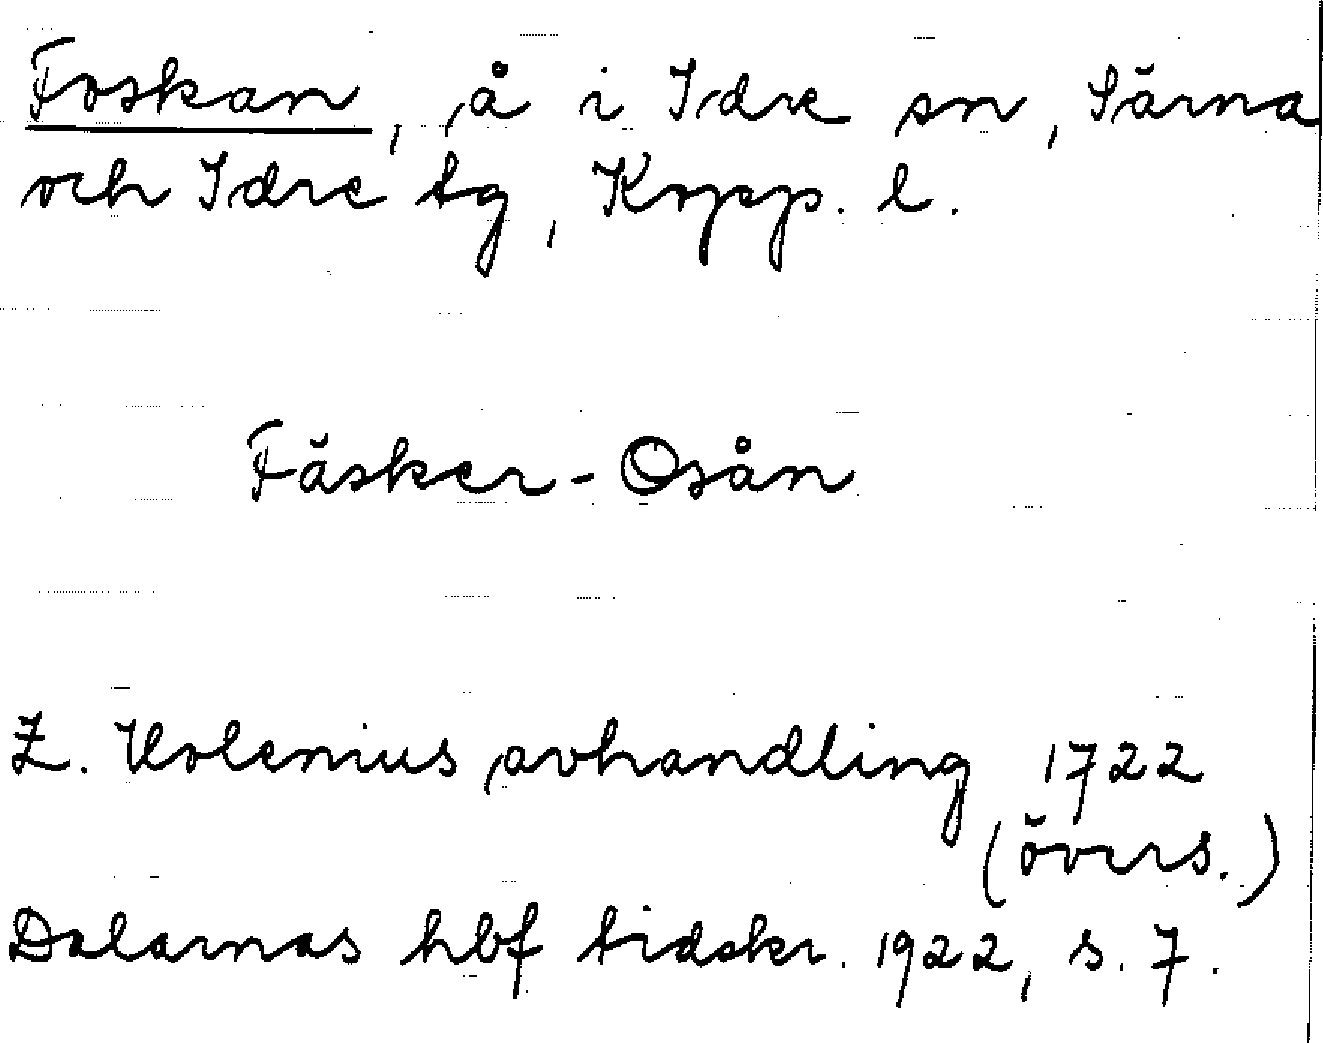 Foskan, å i Idre sn, Särna
och Idre tg, Kopp. l.
Fäsker-Osån
Z. Holenius avhandling 1722
(övers.)
Dalarnas hbf tidskr. 1922, s. 7.